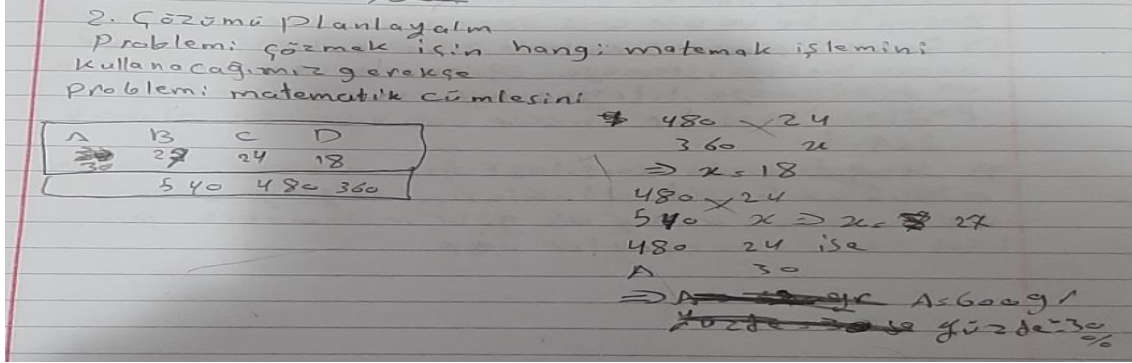 2. Çözümü planlayalım
Problemi çözmek için hangi matemak işlemini
kullanacağımız gerekçe
problemi matematik cümlesini
A B C D
30 27 24 18
540 480 360
480 24
360 x
⇒ x = 18
480 24
540 x ⇒ x = 27
480 24 ise
A 30
⇒ A=600gr
yüzde=30%